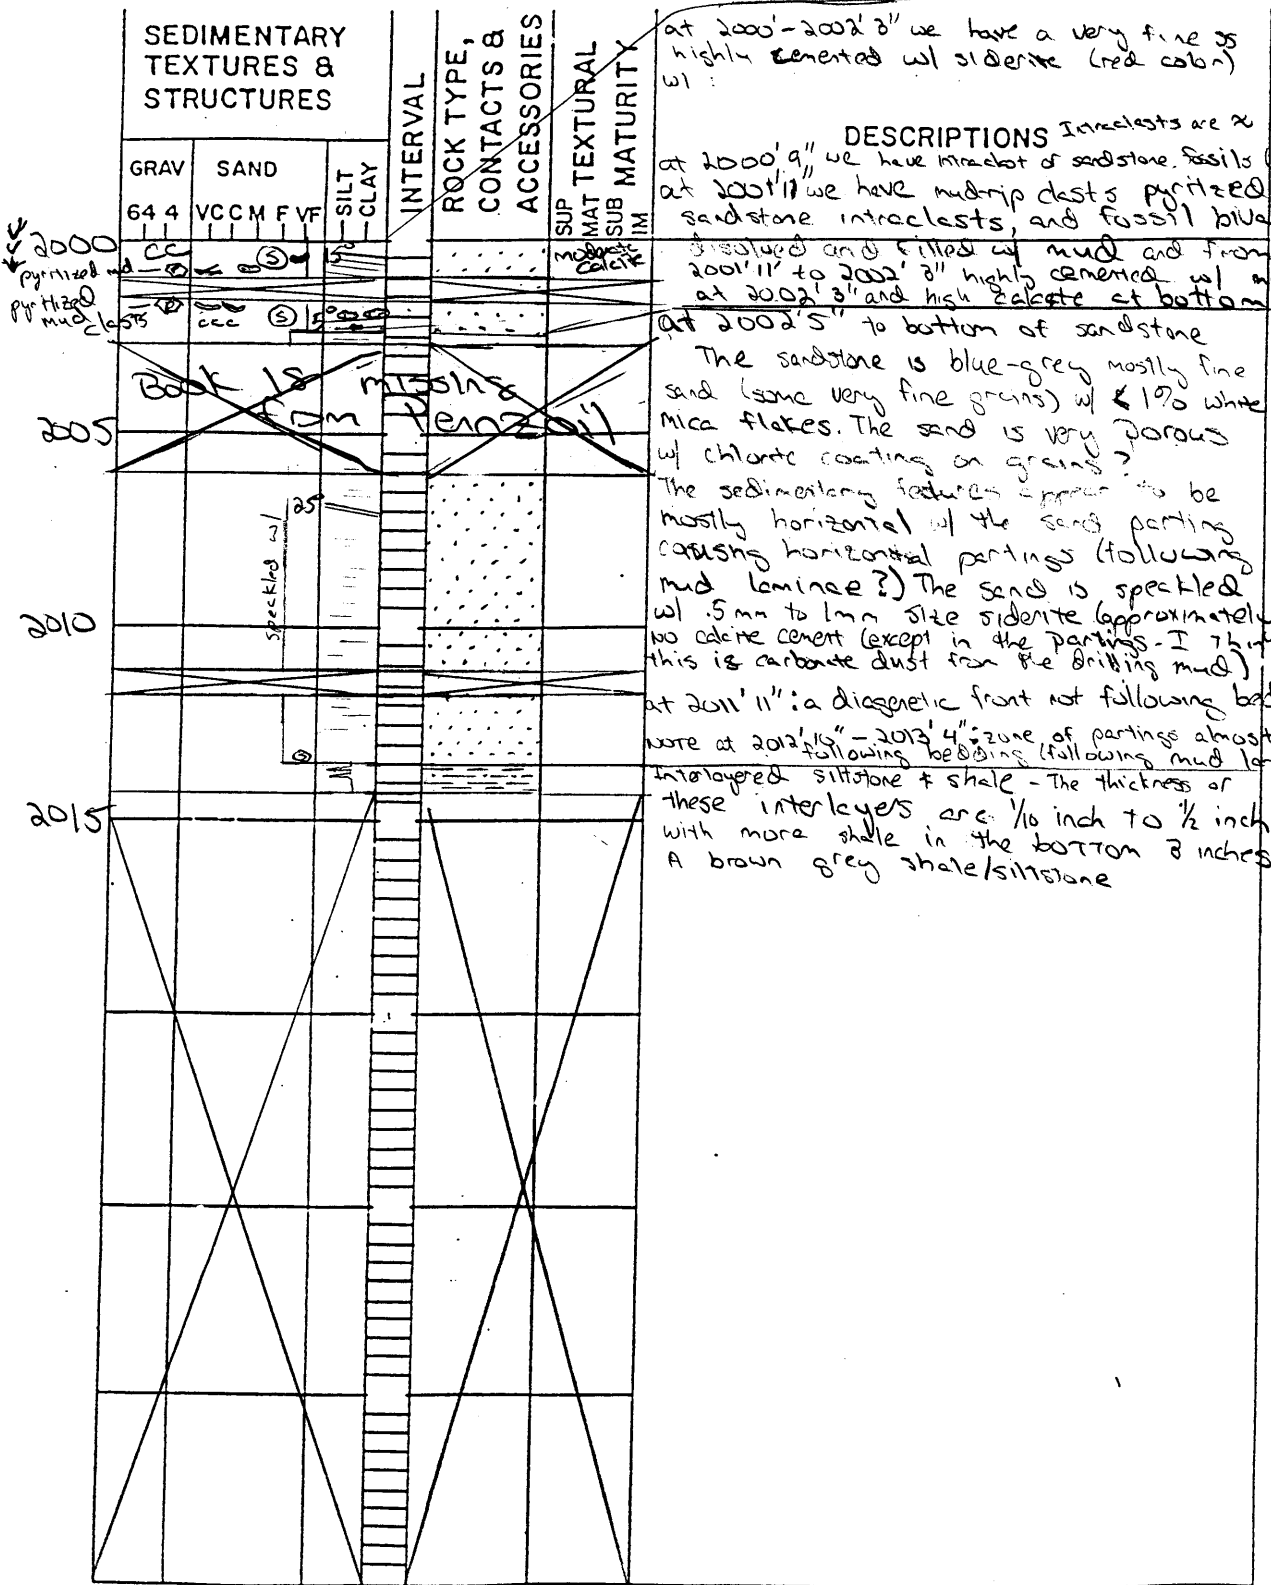 SEDIMENTARY
TEXTURES &
STRUCTURES
GRAV SAND
SILT
CLAY
64 4 VC C M F VF
INTERVAL
ROCK TYPE,
CONTACTS &
ACCESSORIES
TEXTURAL
MATURITY
SUP
MAT
SUB
IM
at 2000'-2002' 3" we have a very fine ss
highly cemented w/ siderite (red color)
w/ :
DESCRIPTIONS Intraclasts are ≈
at 2000' 9" we have intraclast of sandstone. fossils (
at 2001'11" we have mud-rip clasts pyritized
sandstone intraclasts, and fossil biva
dissolved and filled w/ mud and from
2001'11" to 2002' 3" highly cemented w/
at 2002' 3" and high calcite at bottom
at 2002'5" to bottom of sandstone
The sandstone is blue-grey mostly fine
sand (some very fine grains) w/ <1% white
mica flakes. The sand is very porous
w/ chlorite coating on grains?
The sedimentary features appear to be
mostly horizontal w/ the sand parting
causing horizontal partings (following
mud laminae?) The sand is speckled
w/ .5mm to 1mm size siderite (approximately
No calcite cement (except in the partings - I thin
this is carbonate dust from the drilling mud)
at 2011' 11": a diagenetic front not following bed
NOTE at 2012'10" - 2013' 4": zone of partings almost
following bedding (following mud la
Interlayered siltstone & shale - The thickness of
these interlayers are 1/10 inch to 1/2 inch
with more shale in the bottom 3 inches
A brown grey shale/siltstone
2000
CC
S
5°
moderate
calcite
pyritized mud
pyritized
mud clasts
ccc
S
5°
Book is missing
from Pennzoil
2005
25°
speckled w/
2010
2015